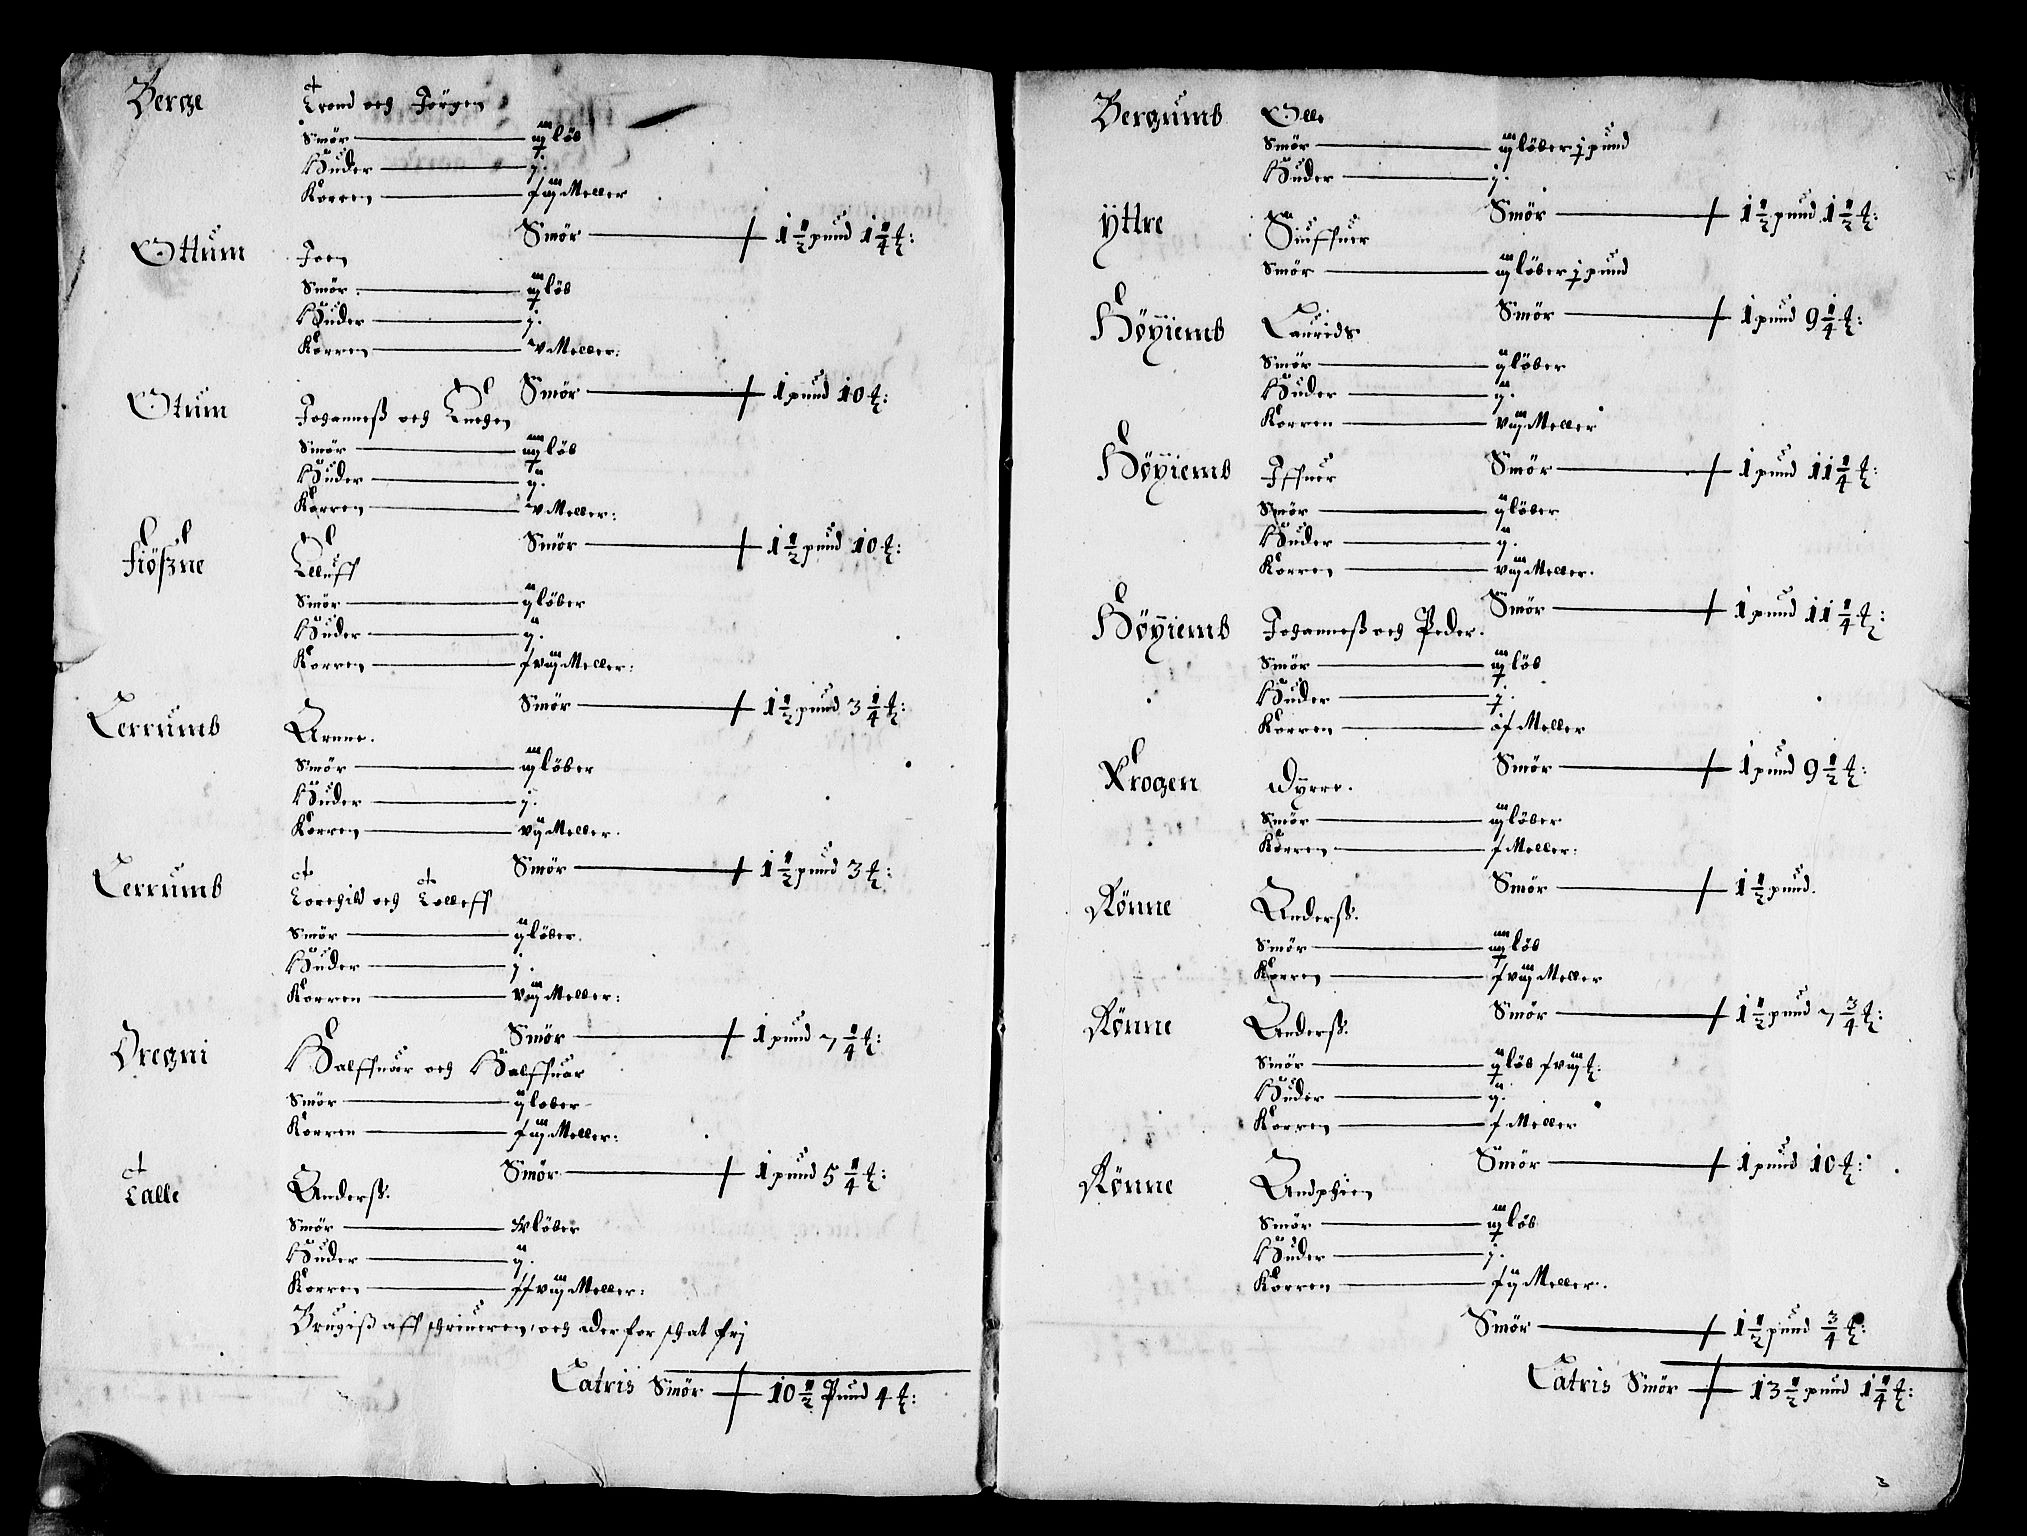 Berge Trond och Jörgen
Smör iij löb
Huder j.
Korren f iij Meller
Smör 1½ pund 1¼ ℔:
Ottum Joen
Smör iij löb
Huder j.
Korren v Meller:
Smör 1 pund 10 ℔:
Otum Johanneß och
Smör iiij löb
Huder ij.
Korren v Meller:
Smör 1½ pund 10 ℔:
Fiößne Elluff
Smör ij löber
Huder ij.
Korren f viij Meller:
Smör 1½ pund 3¼ ℔:
Lerrumb Arnne.
Smör iij löber
Huder j.
Korren vij Meller.
Smör 1½ pund 3 ℔:
Lerrumb Torchild och Tolleff
Smör ij löber.
Huder j.
Korren viij Meller:
Smör 1 pund 7¼ ℔:
Oregni Halffuar och Halffuar
Smör ij lober
Korren f iij Meller:
Smör 1 pund 5¼ ℔:
Talle Anderß.
Smör löber
Huder ij.
Korren ff viij Meller:
Brugiß aff schriueren, och derfor schat frj
Latris Smör 10½ Pund 4 ℔:
Bergumb Olle
Smör iij löber j pund
Huder j.
Smör 1½ pund 1½ ℔:
Yttre Siuffuer
Smör iij löber j pund
Smör 1 pund 9¼ ℔:
Höyiemb Laurids
Smör ij löber
Huder ij.
Korren viij Meller
Smör 1 pund 11¼ ℔:
Höyiemb Iffuer
Smör ij löber
Huder ij.
Korren viij Meller.
Smör 1 pund 11¼ ℔:
Höyiemb Johanneß och Peder.
Smör iij löb
Huder j.
Korren Meller
Smör 1 pund 9½ ℔:
Krogen Dyrre.
Smör iij löber
Korren f Meller:
Smör 1½ pund.
Rönne Anderß.
Smör iiij löb
Korren f viij Meller
Smör 1½ pund 7¾ ℔:
Rönne Anderß.
Smör ij löb f viij ℔:
Huder ij.
Korren f Meller
Smör 1 pund 10 ℔:
Rönne Andphien
Smör iij löb
Huder j.
Korren f ij Meller.
Smör 1½ pund ¾ ℔:
Latris Smör 13½ pund 1¼ ℔: